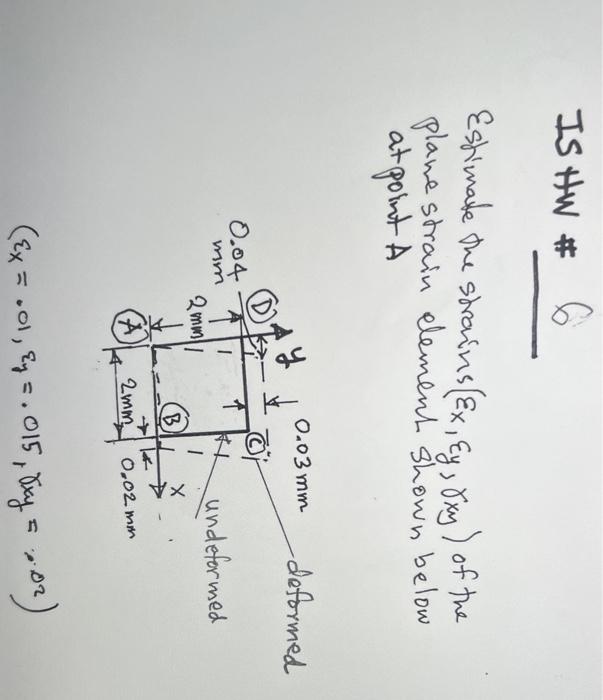 IS HW # 6
Estimate the strains (εx, εy, γxy) of the
plane strain element shown below
at point A
y
0.04
mm
D
0.03mm
C
deformed
2mm
undeformed
A
B
x
2mm
0.02mm
(εx = .01, εy = .015, γxy = .02)